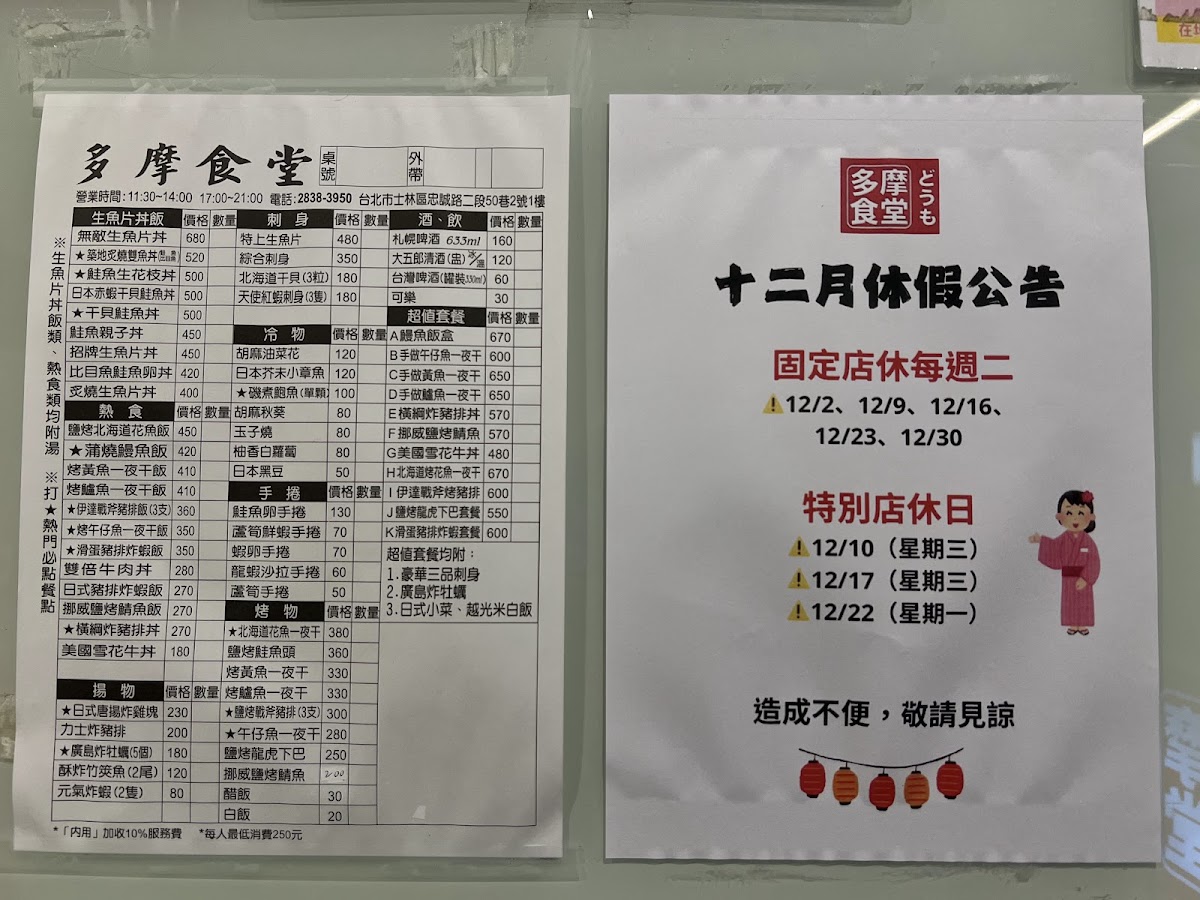 多摩食堂 桌號 外帶
營業時間:11:30~14:00 17:00~21:00 電話:2838-3950 台北市士林區忠誠路二段50巷2號1樓
※生魚片丼飯類、熱食類均附湯 ※打★熱門必點餐點
生魚片丼飯 價格 數量
無敵生魚片丼 680
★築地炙燒雙魚丼 520
★鮭魚生花枝丼 500
日本赤蝦干貝鮭魚丼 500
★干貝鮭魚丼 500
鮭魚親子丼 450
招牌生魚片丼 450
比目魚鮭魚卵丼 420
炙燒生魚片丼 400
熱食 價格 數量
鹽烤北海道花魚飯 450
★蒲燒鰻魚飯 420
烤黃魚一夜干飯 410
烤鱸魚一夜干飯 410
★伊達戰斧豬排飯(3支) 360
★烤午仔魚一夜干飯 350
★滑蛋豬排炸蝦飯 350
雙倍牛肉丼 280
日式豬排炸蝦飯 270
挪威鹽烤鯖魚飯 270
★橫綱炸豬排丼 270
美國雪花牛丼 180
揚物 價格 數量
★日式唐揚炸雞塊 230
力士炸豬排 200
★廣島炸牡蠣(5個) 180
酥炸竹筴魚(2尾) 120
元氣炸蝦(2隻) 80
刺身 價格 數量
特上生魚片 480
綜合刺身 350
北海道干貝(3粒) 180
天使紅蝦刺身(3隻) 180
冷物 價格 數量
胡麻油菜花 120
日本芥末小章魚 120
★磯煮鮑魚(單顆) 100
胡麻秋葵 80
玉子燒 80
柚香白蘿蔔 80
日本黑豆 50
手捲 價格 數量
鮭魚卵手捲 130
蘆筍鮮蝦手捲 70
蝦卵手捲 70
龍蝦沙拉手捲 60
蘆筍手捲 50
烤物 價格 數量
★北海道花魚一夜干 380
鹽烤鮭魚頭 360
烤黃魚一夜干 330
烤鱸魚一夜干 330
★鹽烤戰斧豬排(3支) 300
★午仔魚一夜干 280
鹽烤龍虎下巴 250
挪威鹽烤鯖魚 200
醋飯 30
白飯 20
酒、飲 價格 數量
札幌啤酒 633ml 160
大五郎清酒(壺)冰/溫 120
台灣啤酒(罐裝330ml) 60
可樂 30
超值套餐 價格 數量
A鰻魚飯盒 670
B手做午仔魚一夜干 600
C手做黃魚一夜干 650
D手做鱸魚一夜干 650
E橫綱炸豬排丼 570
F挪威鹽烤鯖魚 570
G美國雪花牛丼 480
H北海道烤花魚一夜干 670
I伊達戰斧烤豬排 600
J鹽烤龍虎下巴套餐 550
K滑蛋豬排炸蝦套餐 600
超值套餐均附:
1.豪華三品刺身
2.廣島炸牡蠣
3.日式小菜、越光米白飯
*「內用」加收10%服務費 *每人最低消費250元
多摩食堂 どうも
十二月休假公告
固定店休每週二
⚠12/2、12/9、12/16、
12/23、12/30
特別店休日
⚠12/10(星期三)
⚠12/17(星期三)
⚠12/22(星期一)
造成不便,敬請見諒